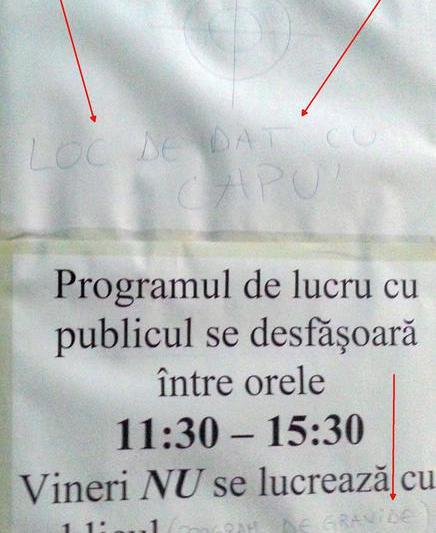 LOC DE DAT CU
CAPU'
Programul de lucru cu
publicul se desfăşoară
între orele
11:30 – 15:30
Vineri NU se lucrează cu
publicul (PROGRAM DE GRAVIDE)